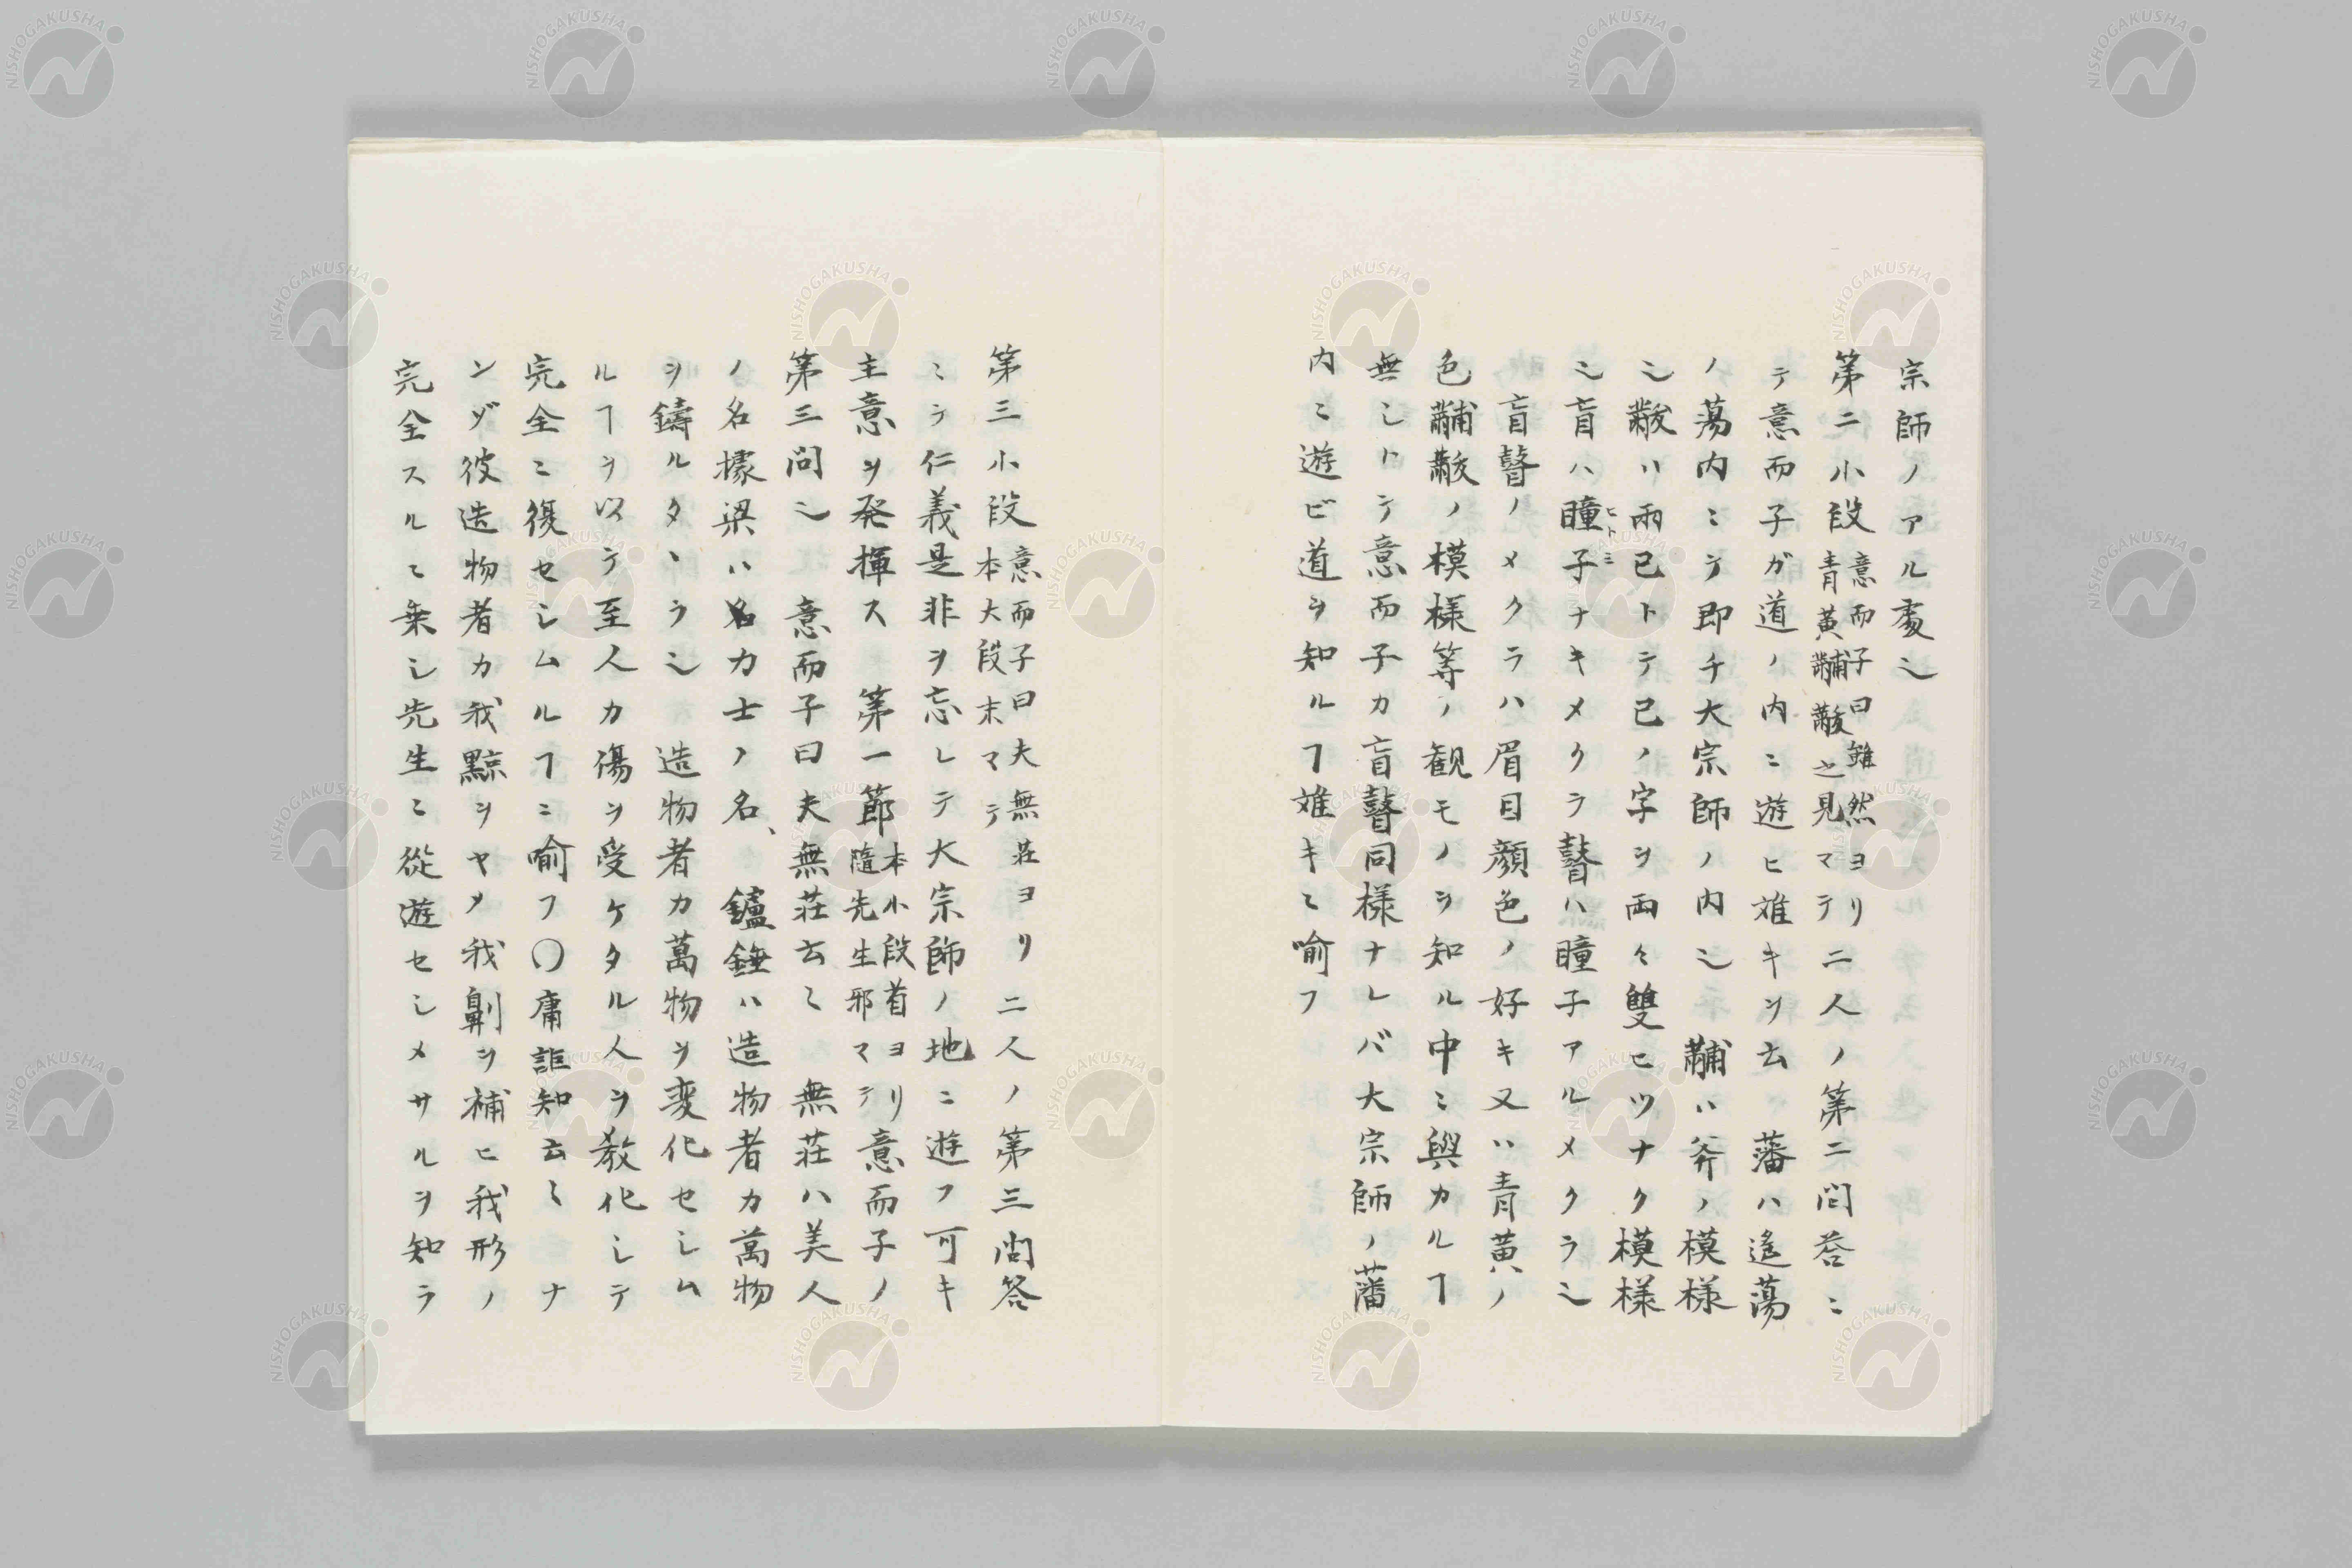 宗師ノアル処也
第二小段意而子曰雖然ヨリ青黄黼黻之見マテ二人ノ第二問答ニ
テ意而子ガ道ノ内ニ遊ヒ難キヲ云ヽ藩ハ遙蕩
ノ蕩内ニテ即チ大宗師ノ内也 黼ハ斧ノ模様
也黻ハ兩已トテ已ノ字ヲ両々雙ヒツナク模様
也盲ハ瞳子ナキメクラ瞽ハ瞳子アルメクラ也
ヒトミ
盲瞽ノメクラハ眉目顔色ノ好キ又ハ青黄ノ
色黼黻ノ模様等ノ観モノヲ知ル中ニ與カルヿ
無しトテ意而子カ盲瞽同様ナレバ大宗師ノ藩
内ニ遊ビ道ヲ知ルヿ難キニ喻フ
第三小段意而子曰夫無荘ヨリ本大段末マテ二人ノ第三問答
ニテ仁義是非ヲ忘レテ大宗師ノ地ニ遊フ可キ
主意ヲ発揮ス 第一節本小段首ヨリ隨先生邪マテ意而子ノ
第三問也 意而子曰夫無荘云々 無荘ハ美人
ノ名據梁ハ名力士ノ名、鑪錘ハ造物者カ萬物
ヲ鑄ルタヽラ也 造物者カ萬物ヲ変化セシム
ルヿヲ以テ至人カ傷ヲ受ケタル人ヲ教化シテ
完全ニ復セシムルヿニ喻フ〇庸詎知云々 ナ
ンゾ彼造物者カ我黥ヲヤメ我劓ヲ補ヒ我形ノ
完全スルニ乗し先生ニ從遊セシメサルヲ知ラ
NISHOGAKUSHA